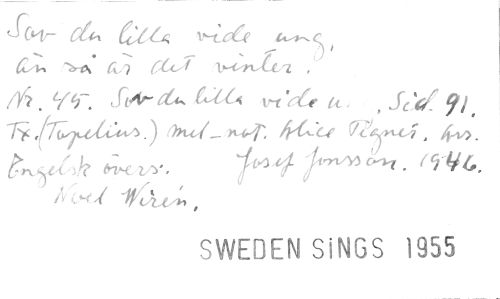 Sov du lilla vide ung,
än så är det vinter.
Nr. 45. Sov du lilla vide u. , Sid. 91.
Tx. (Topelius.) mel-not. Alice Tegnér. Arr.
Engelsk övers. Josef Jonsson. 1946.
Noel Wirén.
SWEDEN SiNGS 1955